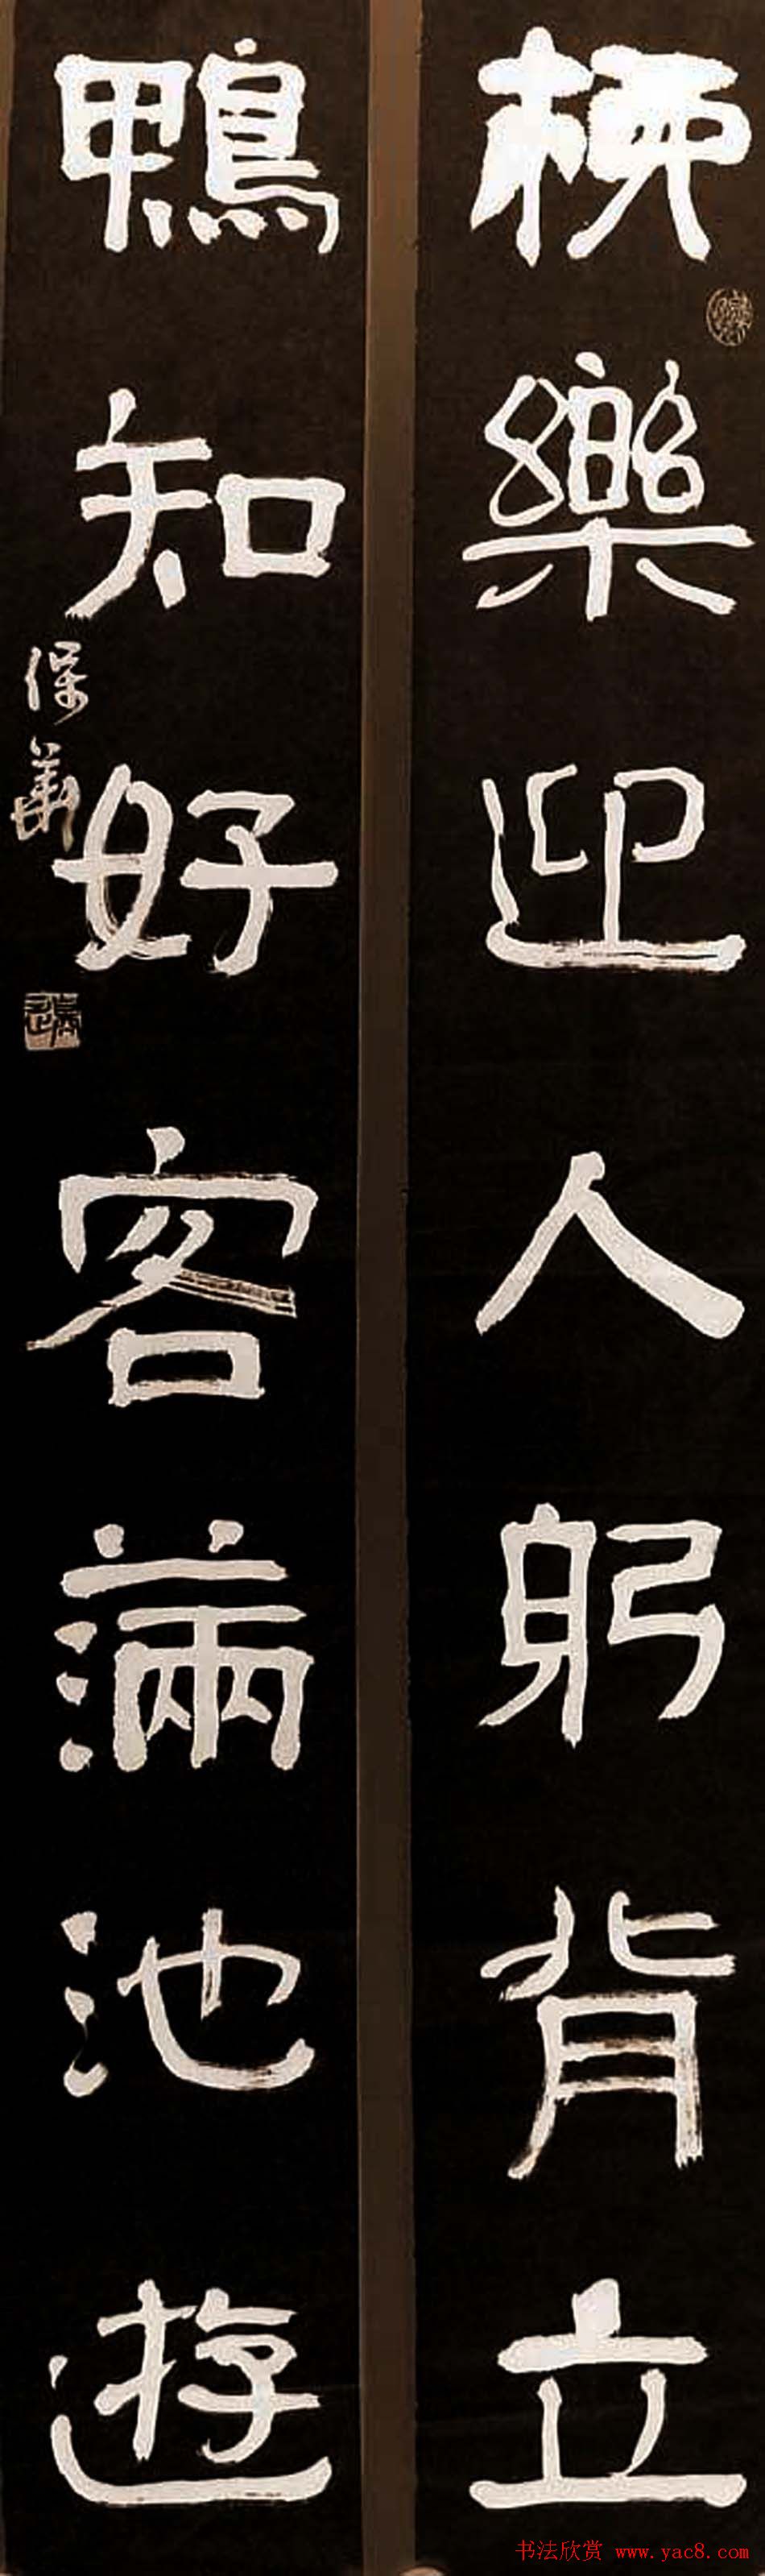 樂迎人躬背立
鴨知好客滿池遊
保華
书法欣赏 www.yac8.com